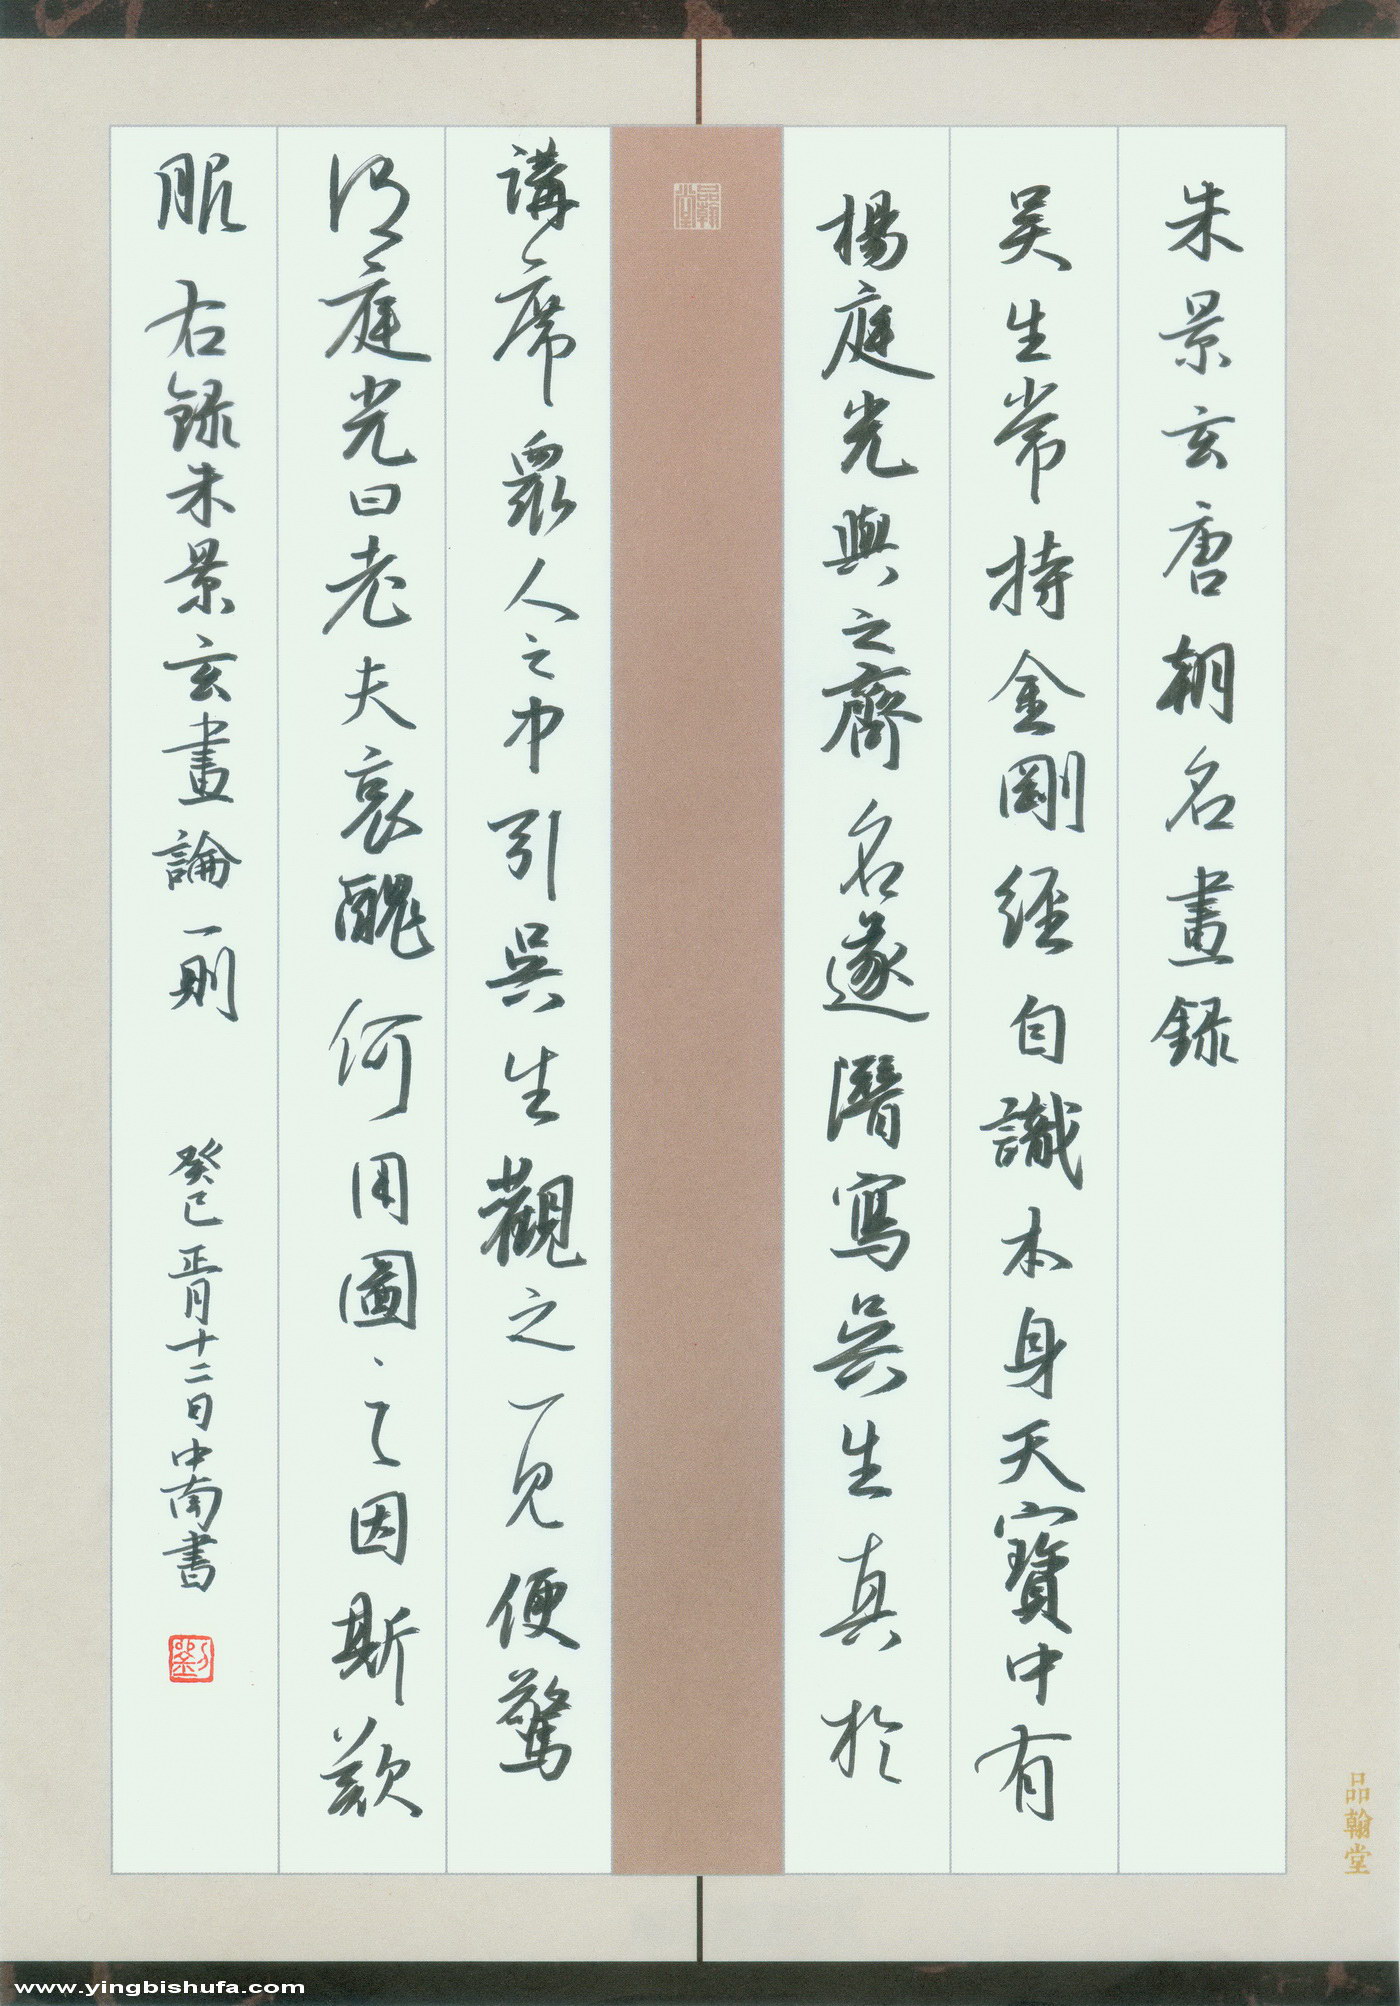 朱景玄唐朝名畫錄
吴生常持金剛經自識本身天寶中有
楊庭光與之齊名遂潛寫吳生真於
講席眾人之中引吳生觀之一見便驚
語庭光曰老夫衰醜何用圖之因斯歎
服 右録朱景玄畫論一則 癸巳正月十二日中南書
劉
品翰堂
品翰堂
www.yingbishufa.com